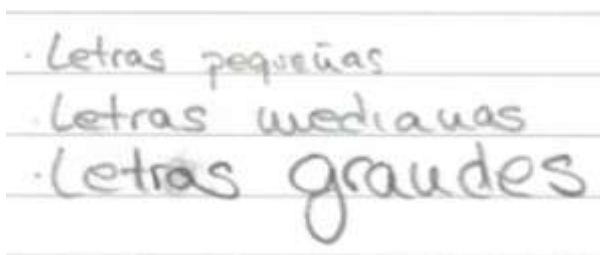 · Letras pequeñas
· Letras medianas
· Letras grandes